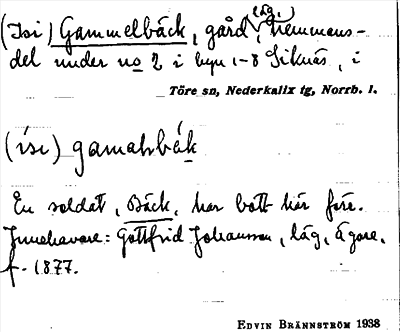 (Isi) Gammelbäck, gård, låg., hemmans-
del under no 2 i byn 1-8 Siknäs, i
Töre sn, Nederkalix tg, Norrb. l.
(ísi) gamalsbäk
En soldat, Bäck, har bott här förr.
Innehavare: Gottfrid Johansson, läg. ägare,
f. 1877.
EDVIN BRÄNNSTRÖM 1938